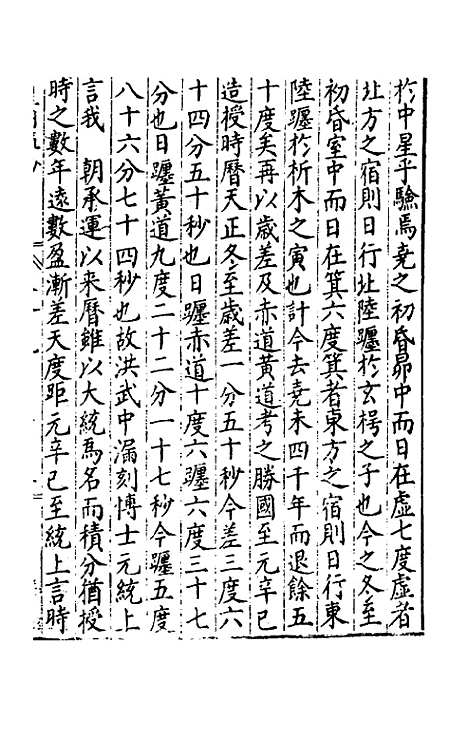 扵中星乎驗焉堯之初昏昴中而日在虛七度虛者
北方之宿則日行北陸躔扵玄枵之子也今之冬至
初昏室中而日在箕六度箕者東方之宿則日行東
陸躔扵析木之寅也計今去堯未四千年而退餘五
十度矣再以歲差及赤道黃道考之勝國至元辛巳
造授時曆天正冬至歲差一分五十秒今差三度六
十四分五十秒也日躔赤道十度六躔六度三十七
分也日躔黃道九度二十二分一十七秒今躔五度
八十六分七十四秒也故洪武中漏刻博士元統上
言我 朝承運以来曆雖以大統爲名而積分猶授
時之數年遠數盈漸差天度距元辛巳至統上言時